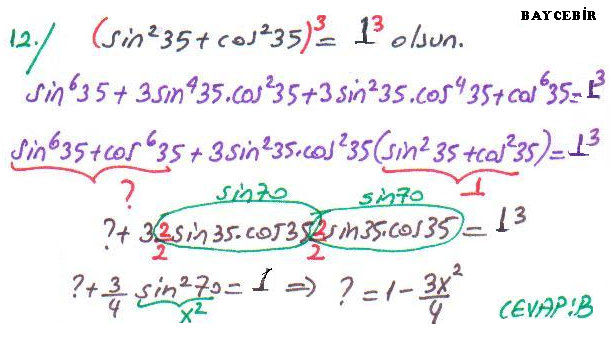 BAYCEBİR
12./ (sin²35+cos²35)³ = 1³ olsun.
sin⁶35 + 3sin⁴35.cos²35 + 3sin²35.cos⁴35 + cos⁶35 = 1³
sin⁶35 + cos⁶35 + 3sin²35.cos²35 (sin²35 + cos²35) = 1³
? 1
sin70 sin70
? + 3 2/2 sin35.cos35 2/2 sin35.cos35 = 1³
? + 3/4 sin²70 = 1 ⇒ ? = 1 - 3x²/4
x²
CEVAP:B